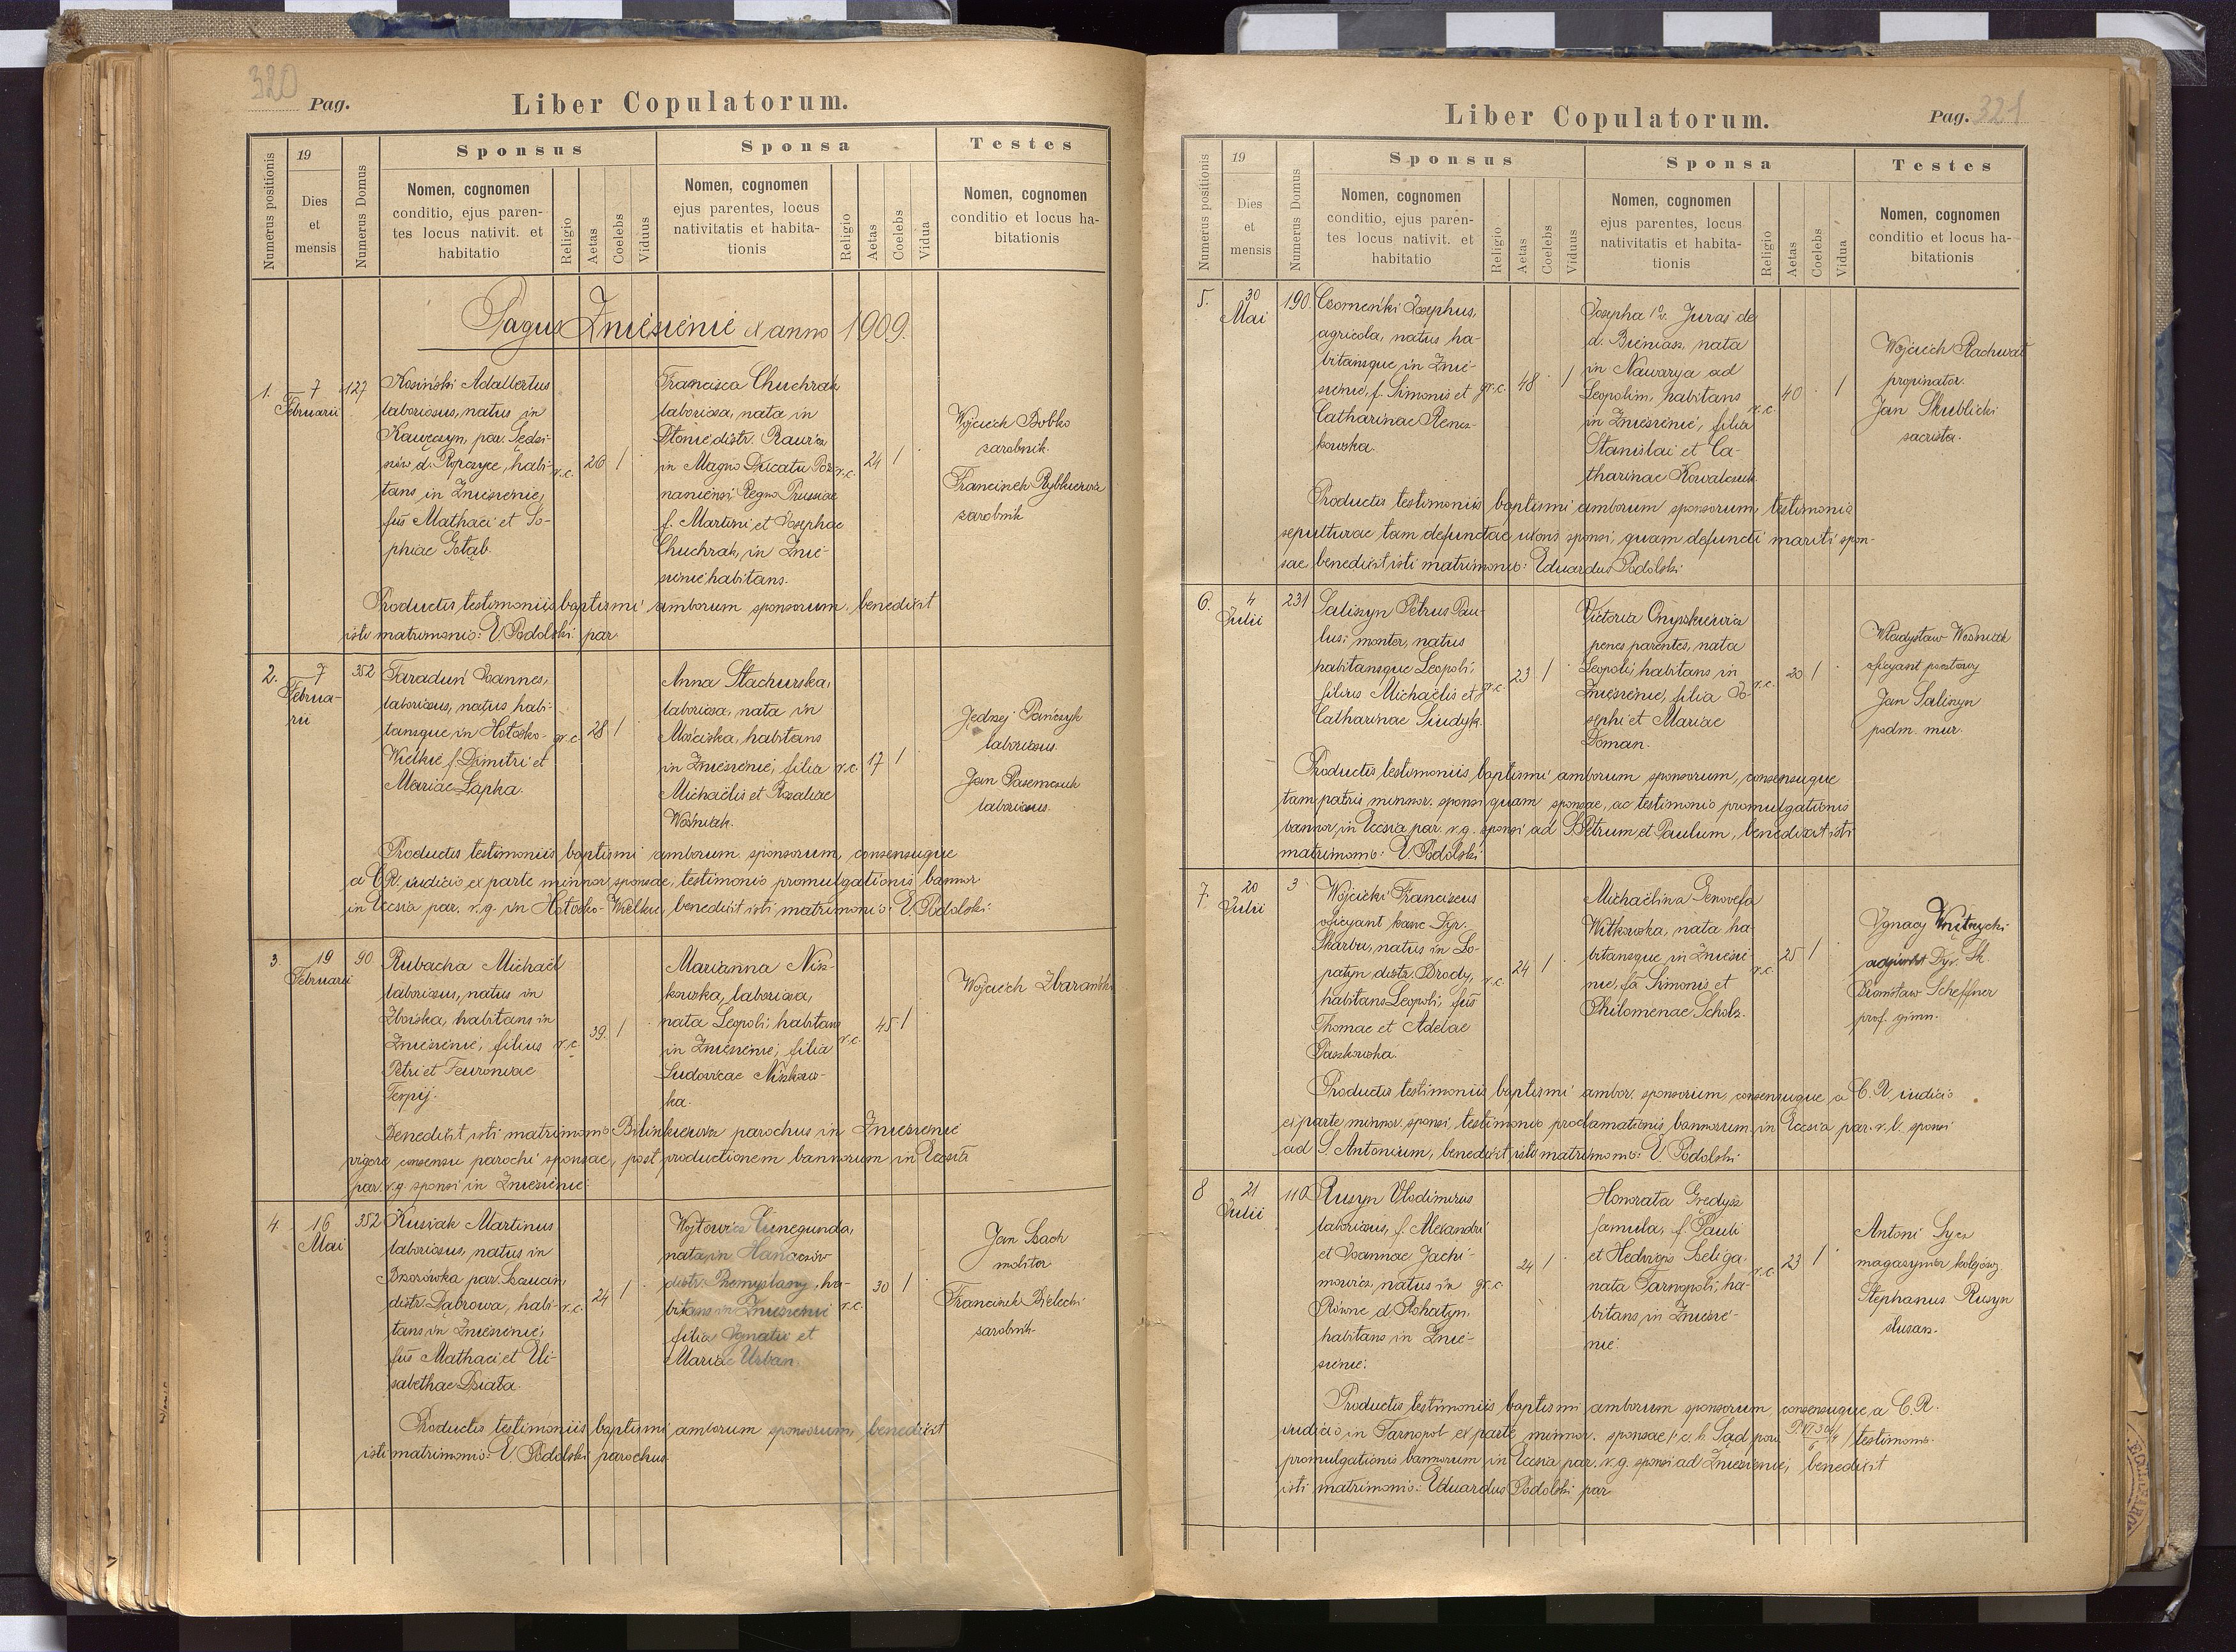 320 Pag.
Liber Copulatorum.
Numerus positionis
19
Dies
et
mensis
Numerus Domus
Sponsus
Nomen, cognomen
conditio, ejus paren-
tes locus nativit. et
habitatio
Religio
Aetas
Coelebs
Viduus
Sponsa
Nomen, cognomen
ejus parentes, locus
nativitatis et habita-
tionis
Religio
Aetas
Coelebs
Vidua
Testes
Nomen, cognomen
conditio et locus ha-
bitationis
Pagus Zniesienie ex anno 1909.
1.
7
Februarii
127
Kosiński Adalbertus
laboriosus, natus in
Kawęczyn, par. Sędzi-
szów d. Ropczyce, habi-
tans in Zniesienie,
fus Mathaei et So-
phiae Gołąb.
r.c.
26
1
Francisca Chuchrak
laboriosa, nata in
distr. Rawicz
in Magno Ducatu Poz-
naniensi Regno Prussiae
f. Martini et Josephae
Chuchrak, in Znie-
sienie habitans.
r.c.
24
1
Wojciech Bobko
zarobnik.
Franciszek Rybkiewicz
zarobnik
Productis testimoniis baptismi amborum sponsorum, benedixit
isti matrimonio: E. Podolski par.
2.
7
Februa-
rii
352
Taraduń Joannes,
laboriosus, natus habi-
tansque in Hołosko-
Wielkie f. Dimitri et
Mariae Łapka.
gr.c.
28
1
Anna Stachurska,
laboriosa, nata in
Mościska, habitans
in Zniesienie, filia
Michaëlis et Rozaliae
Woźniak.
r.c.
17
1
Jędrzej Pańczyk
laboriosus.
Jan Pasemczuk
laboriosus.
Productis testimoniis baptismi amborum sponsorum, consensuque
a C.R. iudicio ex parte minnor. sponsae, testimonio promulgationis bannor.
in Ecсsia par. r.g. in Hołosko-Wielkie, benedixit isti matrimonio: E. Podolski.
3
19
Februarii
90.
Rubacha Michaël
laboriosus, natus in
Zboiska, habitans in
Zniesienie, filius
Petri et Feuroniae
Terpij.
r.c.
39.
1
Marianna Nisz-
kowska, laboriosa,
nata Leopoli, habitans
in Zniesienie, filia
Ludovicae Niszkow-
ka.
r.c.
45
1
Wojciech Zbarański
Benedixit isti matrimonio Bilinkiewicz parochus in Zniesienie
vigore consensu parochi sponsae, post productionem bannorum in Eccsia
par. r.g. sponsi in Zniesienie.
4.
16
Mai
352
Kusiak Martinus
laboriosus, natus in
Brzozówka par.
distr. Dąbrowa, habi-
tans in Zniesienie,
fus Mathaei et Eli-
sabethae Biata.
r.c.
24
1
Wojtowicz Cunegunda,
nata in Hanaczów
distr. Przemyślany, ha-
bitans in Zniesienie
filia Ignatii et
Mariae Urban.
r.c.
30
1
Jan Bach
molitor
Franciszek Bielecki
zarobnik.
Productis testimoniis baptismi amborum sponsorum, benedixit
isti matrimonio: E. Podolski parochus.
Liber Copulatorum.
Pag. 321
Numerus positionis
19
Dies
et
mensis
Numerus Domus
Sponsus
Nomen, cognomen
conditio, ejus paren-
tes locus nativit. et
habitatio
Religio
Aetas
Coelebs
Viduus
Sponsa
Nomen, cognomen
ejus parentes, locus
nativitatis et habita-
tionis
Religio
Aetas
Coelebs
Vidua
Testes
Nomen, cognomen
conditio et locus ha-
bitationis
5.
30
Mai
190.
Josephus,
agricola, natus ha-
bitansque in Znie-
sienie, f. Simonis et
Catharinae Renez-
kowska.
gr.c.
48
1
Josepha 1o v. Juraś de
d. Bieniasz, nata
in Nawarya ad
Leopolim, habitans
in Zniesienie, filia
Stanislai et Ca-
tharinae Kowalczuk.
r.c.
40
1
Wojciech Rachwał
propinator.
Jan Skublicki
sacrista.
Productis testimoniis baptismi amborum sponsorum, testimonio
sepulturae tam defunctae uxoris sponsi, quam defuncti mariti spon-
sae, benedixit isti matrimonio: Eduardus Podolski
6.
4
Julii
231
Saliszyn Petrus Pau-
lus, monter, natus
habitansque Leopoli,
filius Michaëlis et
Catharinae Siudyk.
gr.c.
23
1
Victoria Onyszkiewicz
penes parentes, nata
Leopoli, habitans in
Zniesienie, filia Jo-
sephi et Mariae
Doman.
r.c.
20
1
Władysław Woźniak
oficyant pocztowy
Jan Saliszyn
podm. mur.
Productis testimoniis baptismi amborum sponsorum, consensuque
tam patris minnor. sponsi quam sponsae, ac testimonio promulgationis
bannor. in Eccsia par. r.g. sponsi ad S. Petrum et Paulum, benedixit isti
matrimonio: E. Podolski
7.
20
Julii
3
Wojcicki Franciscus
oficyant kanc. Dyr.
Skarbu, natus in Ło-
patyn distr. Brody,
habitans Leopoli, fus
Thomae et Adelae
Paszkowska.
r.c.
24
1
Michaëlina Genovefa
Witkowska, nata ha-
bitansque in Zniesie-
nie, fa Simonis et
Philomenae Scholz.
r.c.
25
1
Ignacy
adjunkt Dyr. Sk.
Bronisław Scheffner
prof. gimn.
Productis testimoniis baptismi ambor. sponsorum, consensuque a C.R. iudicio
ex parte minnor. sponsi, testimonio proclamationis bannorum in Eccsia par. r.l. sponsi
ad S. Antonium, benedixit isti matrimonio: E. Podolski
8
21
Julii
110
Rusyn Vlodimirus
laboriosus, f. Alexandri
et Joannae Jachi-
mowicz, natus in
Równe d. Rohatyn,
habitans in Znie-
sienie.
gr.c
24
1
Honorata Gredysz
famula, f. Pauli
et Hedvigis Seliga.
nata Tarnopoli, ha-
bitans in Zniesie-
nie.
r.c.
23
1
Antoni Syca
magazynier kolejowy.
Stephanus Rusyn
ślusarz.
Productis testimoniis baptismi amborum sponsorum, consensuque a C.R.
iudicio in Tarnopol ex parte minnor. sponsae /: c.k. Sąd pow. testimonio
promulgationis bannorum in Eccsia par. r.g. sponsi ad Zniesienie, benedixit
isti matrimonio: Eduardus Podolski par